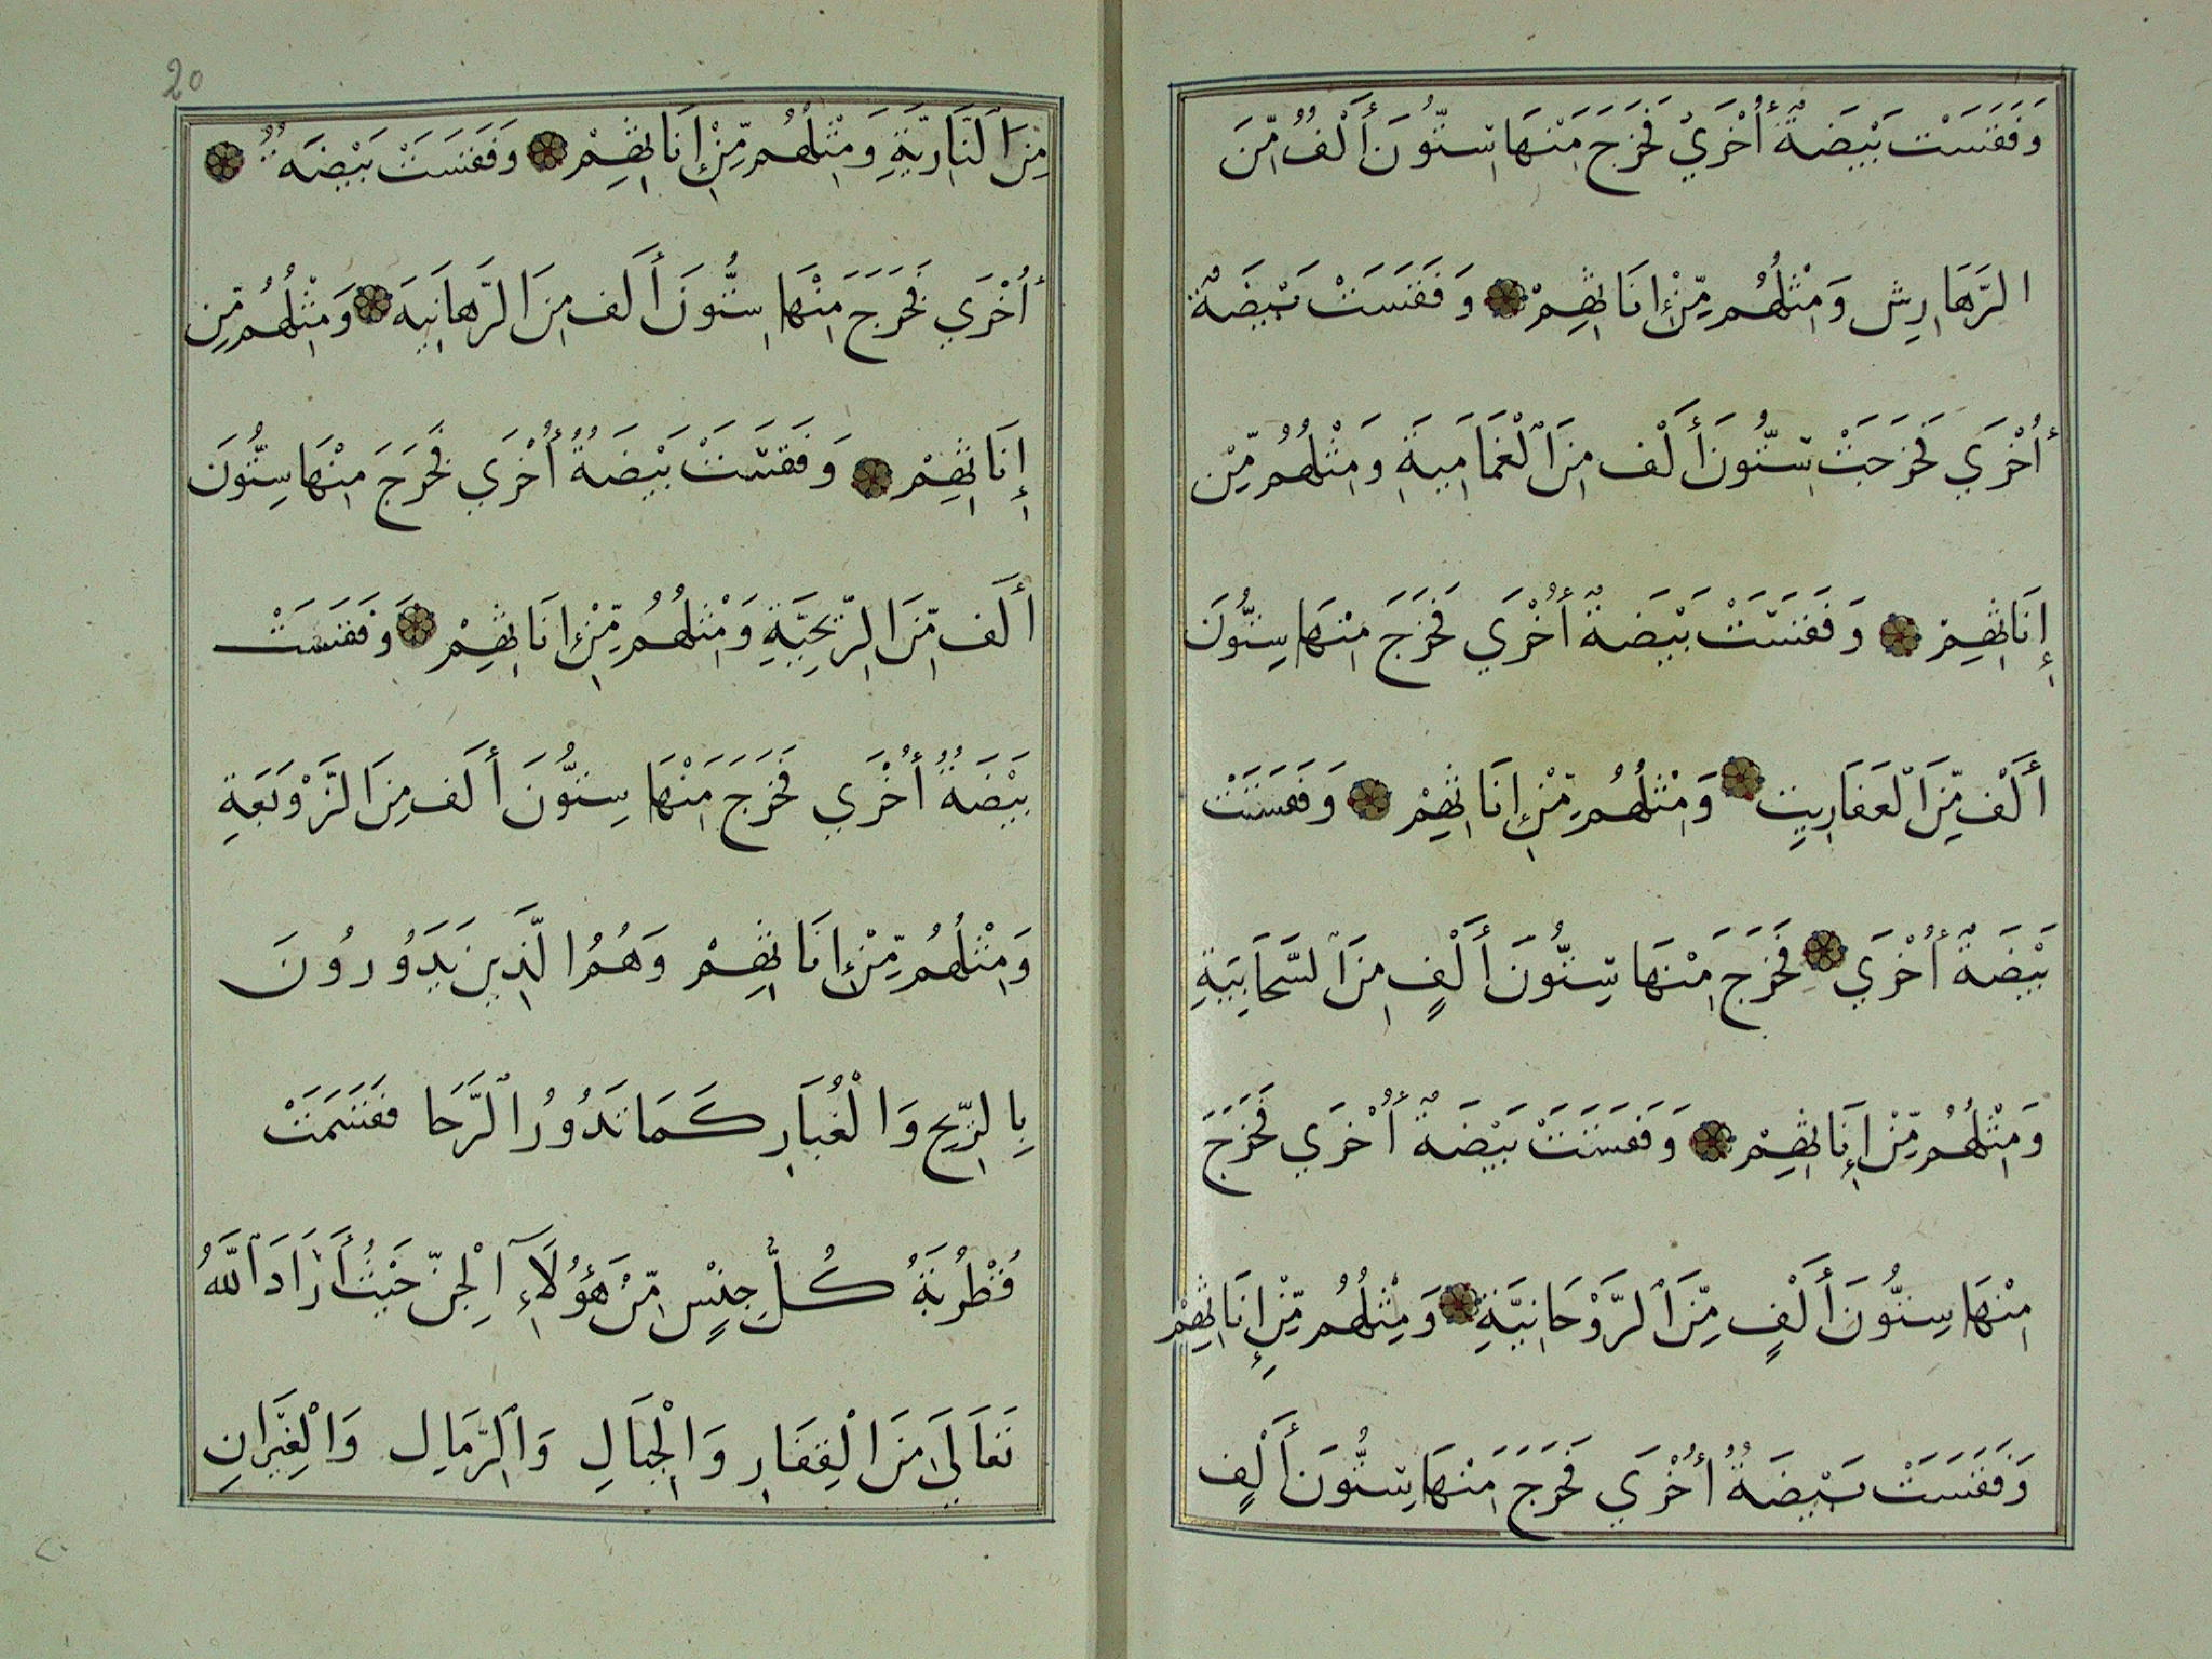 وَفَقَسَتْ بَيْضَةٌ أُخْرَيٰ فَخَرَجَ مِنْهَا سِتُّونَ أَلْفٌ مِّنَ
الرَّهَارِش وَمِثْلُهُم مِّنْ إِنَاثِهِمْ وَفَقَسَتْ بَيْضَةٌ
أُخْرَي فَخَرَجَتْ سِتُّونَ أَلْف مِنَ الْغَمَامِيَةِ وَمِثْلُهُم مِّن
إِنَاثِهِمْ وَفَقَسَتْ بَيْضَةٌ أُخْرَي فَخَرَجَ مِنْهَا سِتُّونَ
أَلْف مِّنَ الْعَفَارِيتِ وَمِثْلُهُم مِّنْ إِنَاثِهِمْ وَفَقَسَتْ
بَيْضَةٌ أُخْرَي فَخَرَجَ مِنْهَا سِتُّونَ أَلْفٍ مِنَ السَّحَابِيَةِ
وَمِثْلُهُم مِّنْ إِنَاثِهِمْ وَفَقَسَتْ بَيْضَةٌ أُخْرَي فَخَرَجَ
مِنْهَا سِتُّونَ أَلْفٍ مِّنَ الرَّوْحَانِيَّةِ وَمِثْلُهُم مِّنْ إِنَاثِهِمْ
وَفَقَسَتْ بَيْضَةٌ أُخْرَي فَخَرَجَ مِنْهَا سِتُّونَ أَلْفٍ
20
مِّنَ النَّارِيَّةِ وَمِثْلُهُم مِّنْ إِنَاثِهِمْ وَفَقَسَتْ بَيْضَةٌ
أُخْرَي فَخَرَجَ مِنْهَا سِتُّونَ أَلَف مِنَ الرَّهَانِيَه وَمِثْلُهُم مِّن
إِنَاثِهِمْ وَفَقَسَتْ بَيْضَةٌ أُخْرَي فَخَرَجَ مِنْهَا سِتُّونَ
أَلَف مِّنَ الرِّيحِيَّةِ وَمِثْلُهُم مِّنْ إِنَاثِهِمْ وَفَقَسَتْ
بَيْضَةٌ أُخْرَي فَخَرَجَ مِنْهَا سِتُّونَ أَلَف مِنَ الزَّوْبَعَةِ
وَمِثْلُهُم مِّنْ إِنَاثِهِمْ وَهُمُ الَّذِينَ يَدَوُرُونَ
بِالرِّيحِ وَالْغُبَارِ كَمَا تَدُورُ الرَّحَا فَقَسَمَتْ
قُطْرُبَةُ كُلَّ جِنْسٍ مِّنْ هَؤُلَآءِ الْجِنّ حَيْثُ أَرَادَ اللَّهُ
تَعَالَي مِنَ الْقِفَارِ وَالْجِبَالِ وَالرِّمَالِ وَالْغِيَرَانِ